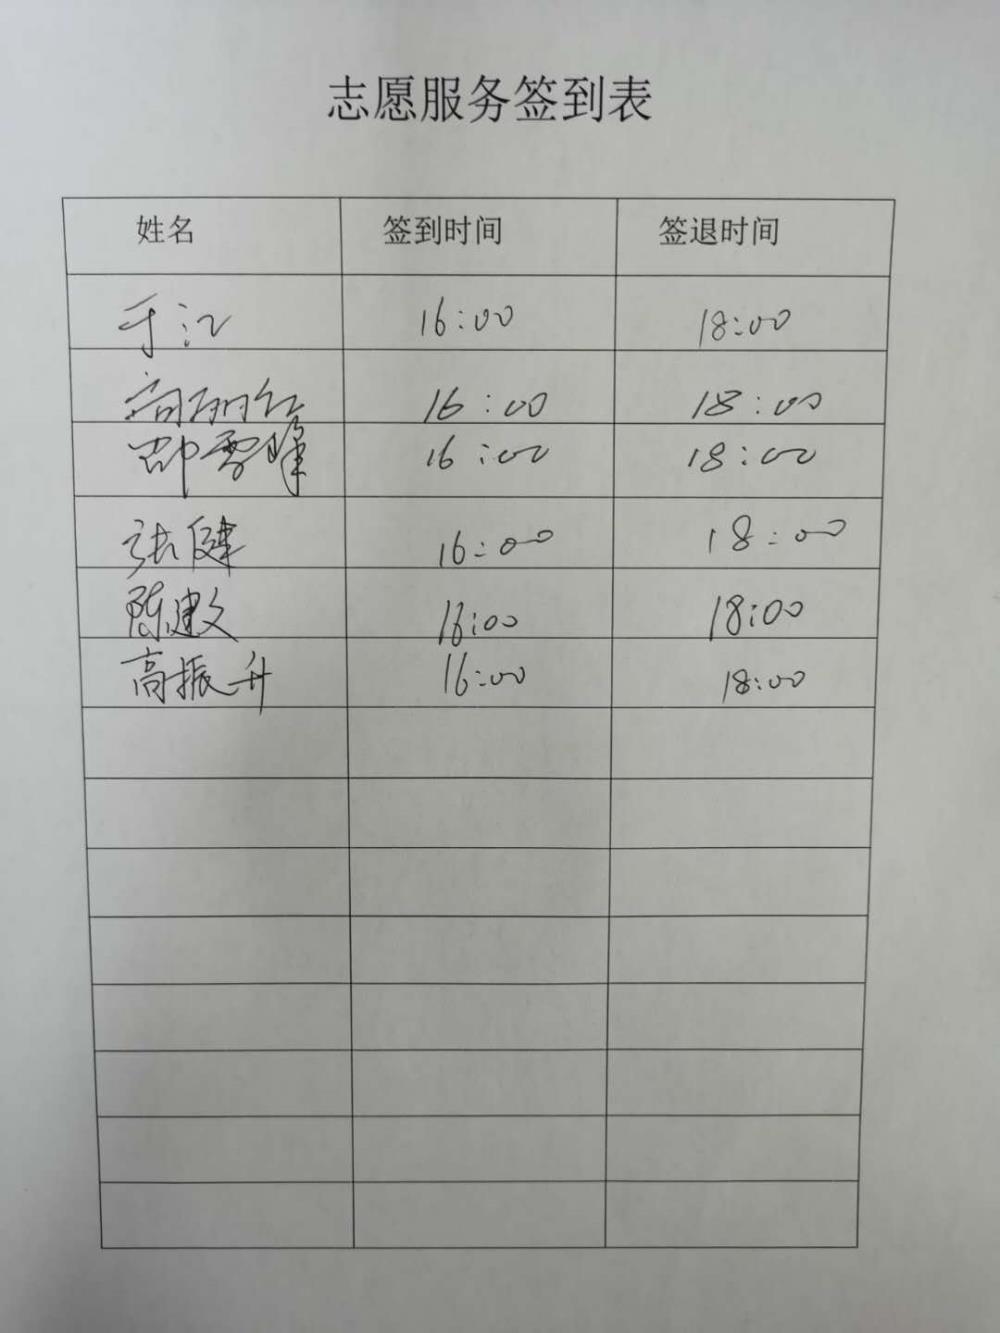 志愿服务签到表
姓名 签到时间 签退时间
于江 16:00 18:00
高丽红 16:00 18:00
邵雪峰 16:00 18:00
张健 16:00 18:00
陈建文 16:00 18:00
高振升 16:00 18:00